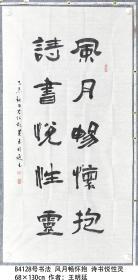 風月暢懷抱
詩書悅性靈
B4128号书法 风月畅怀抱 诗书悦性灵
68×130cm 作者：王明延